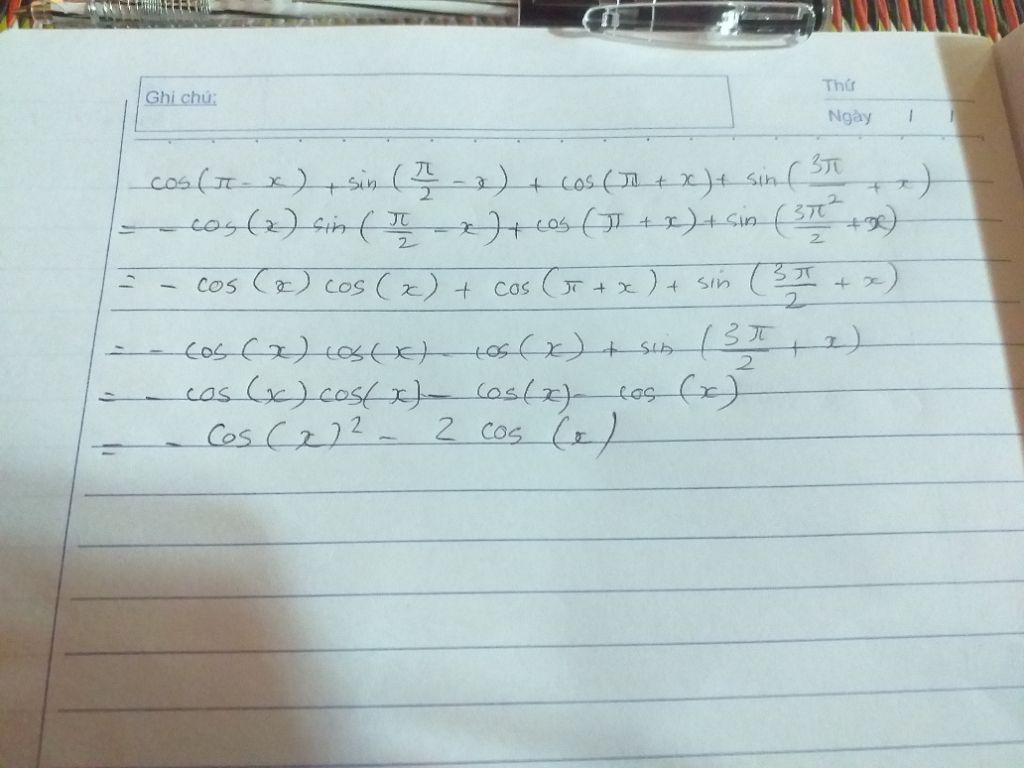 Ghi chú:
Thứ
Ngày / /
cos(π - x) + sin(π/2 - x) + cos(π + x) + sin(3π/2 + x)
= - cos(x) sin(π/2 - x) + cos(π + x) + sin(3π/2 + x)
= - cos(x) cos(x) + cos(π + x) + sin(3π/2 + x)
= - cos(x) cos(x) - cos(x) + sin(3π/2 + x)
= - cos(x) cos(x) - cos(x) - cos(x)
= - cos(x)² - 2 cos(x)